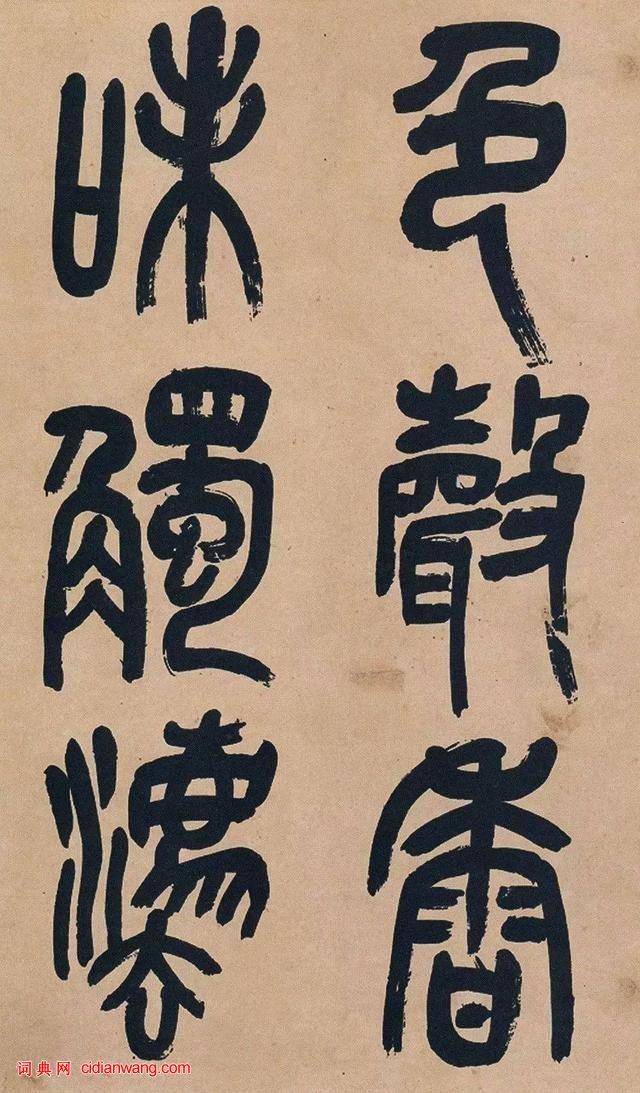 色聲香
味觸灋
词典网 cidianwang.com